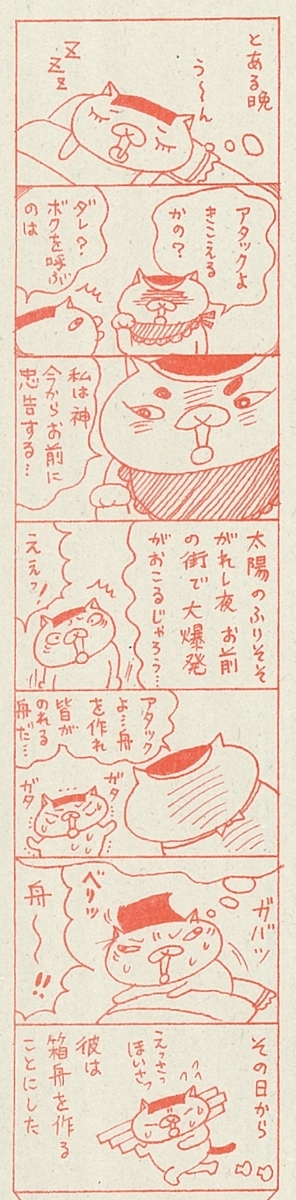 とある晩
う〜ん
Z
Z
Z
Z
アタックよ
きこえる
かの？
ダレ？
ボクを呼ぶ
のは
私は神
今からお前に
忠告する…
太陽のふりそそ
がれし夜 お前
の街で大爆発
がおこるじゃろう…
ええっ！
アタック
よ…舟
を作れ
皆が
のれる
舟だ…
ガタ
ガタ
ガバッ
ベリッ
舟〜〜!!
その日から
えっさっ
ほいさっ
彼は
箱舟を作る
ことにした